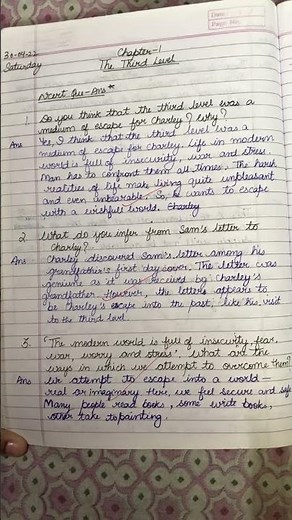 Date:
Page No.
30-04-22
Saturday
Chapter-1
The Third Level
Ncert Que-Ans*
1. Do you think that the third level was a
medium of escape for Charley? Why?
Ans Yes, I think that the third level was a
medium of escape for charley. Life in modern
world is full of insecurity, war and stress.
Man has to confront them all times. The harsh
realities of life make living quite unpleasant
and even unbearable. So, he wants to escape
with a wishfull world. Charley
2. What do you infer from Sam's letter to
Charley?
Ans Charley discovered Sam's letter among his
grandfather's first day cover. The letter was
genuine as it was received by Charley's
grandfather. However, the letters appears to
be Charley's escape into the past, like his visit
to the third level.
3. 'The modern world is full of insecurity, fear,
war, worry and stress'. What are the
ways in which we attempt to overcome them?
Ans We attempt to escape into a world
real or imaginary. Here, we feel secure and safe.
Many people read books, some write books,
other take to painting.